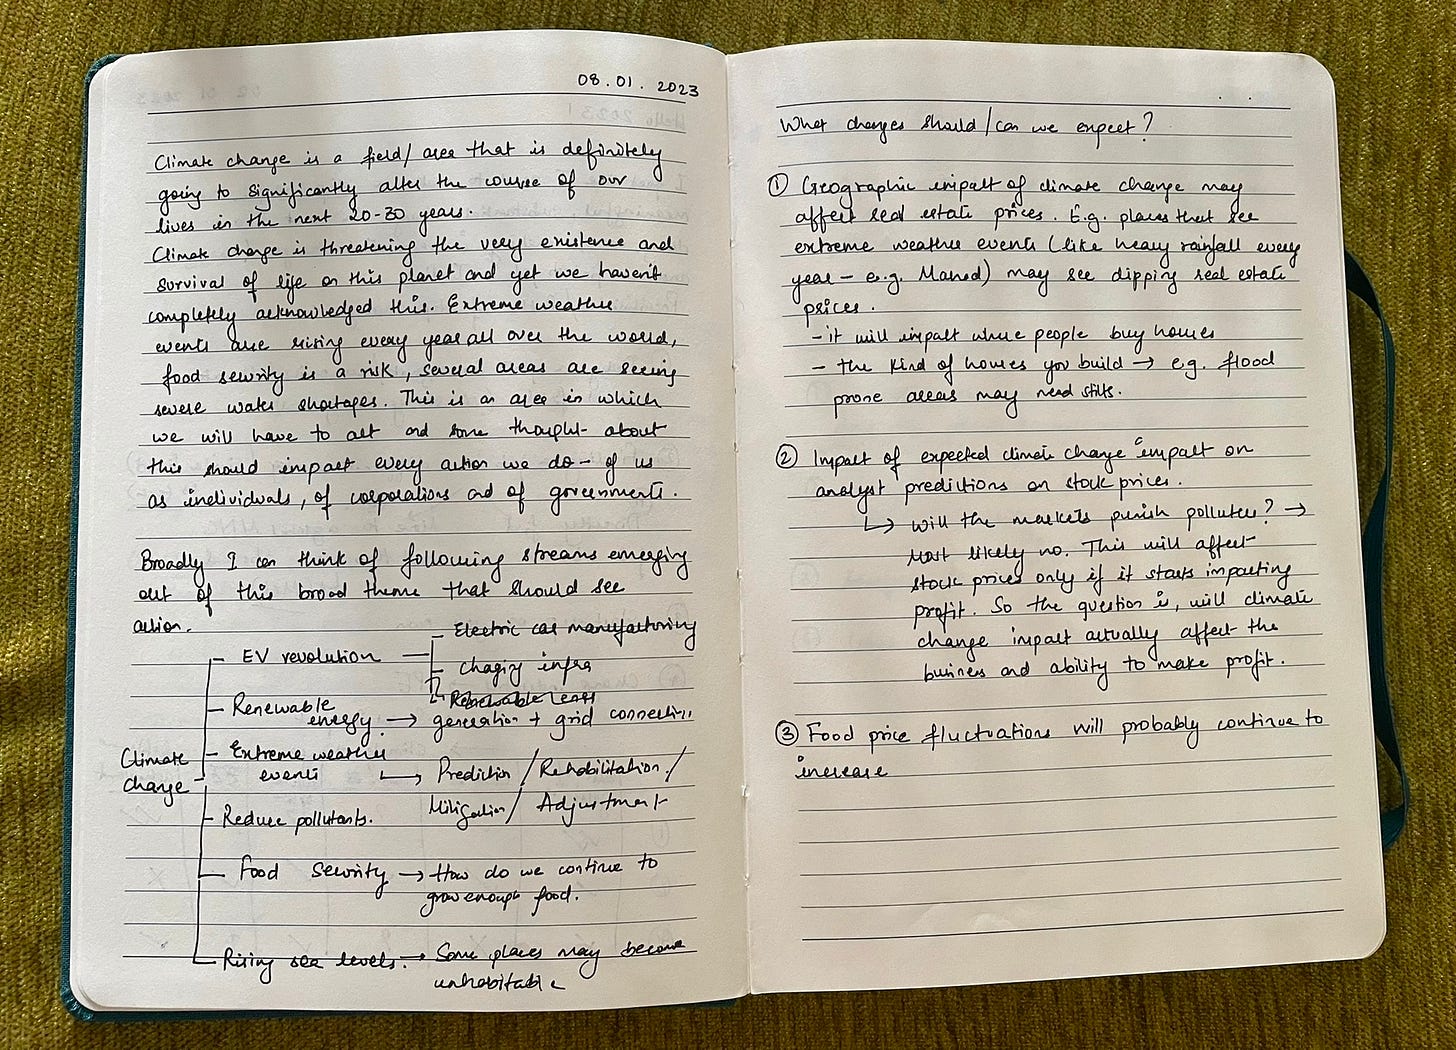 08.01.2023
Climate change is a field/area that is definitely
going to significantly alter the course of our
lives in the next 20-30 years.
Climate change is threatening the very existence and
survival of life on this planet and yet we haven't
completely acknowledged this. Extreme weather
events are rising every year all over the world,
food security is a risk, several areas are seeing
severe water shortages. This is an area in which
we will have to act and some thought about
this should impact every action we do - of us
as individuals, of corporations and of governments.
Broadly I can think of following streams emerging
out of this broad theme that should see
action.
Climate change
EV revolution
- Electric car manufacturing
- Chaging infra
Renewable energy → generation + grid connection
Extreme weather events → Prediction / Rehabilitation /
Mitigation / Adjustment
Reduce pollutants.
Food security → How do we continue to
grow enough food.
Rising sea levels. → Some places may become
unhabitable
What changes should/can we expect?
① Geographic impact of climate change may
affect real estate prices. E.g. places that see
extreme weather events (like heavy rainfall every
year - e.g. ) may see dipping real estate
prices.
- it will impact where people buy homes
- the kind of homes you build → e.g. flood
prone areas may need stilts.
② Impact of expected climate change impact on
analyst predictions on stock prices.
↳ will the markets punish polluters? →
Most likely no. This will affect
stock prices only if it starts impacting
profit. So the question is, will climate
change impact actually affect the
business and ability to make profit.
③ Food price fluctuations will probably continue to
increase